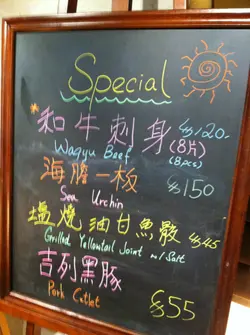 Special
*和牛刺身 $120.
Wagyu Beef (8片)
(8pcs)
海膽一板 $150
Sea Urchin
塩燒油甘魚鮫 $45
Grilled Yellowtail Joint w/ Salt
吉列黑豚
Pork Cutlet $55